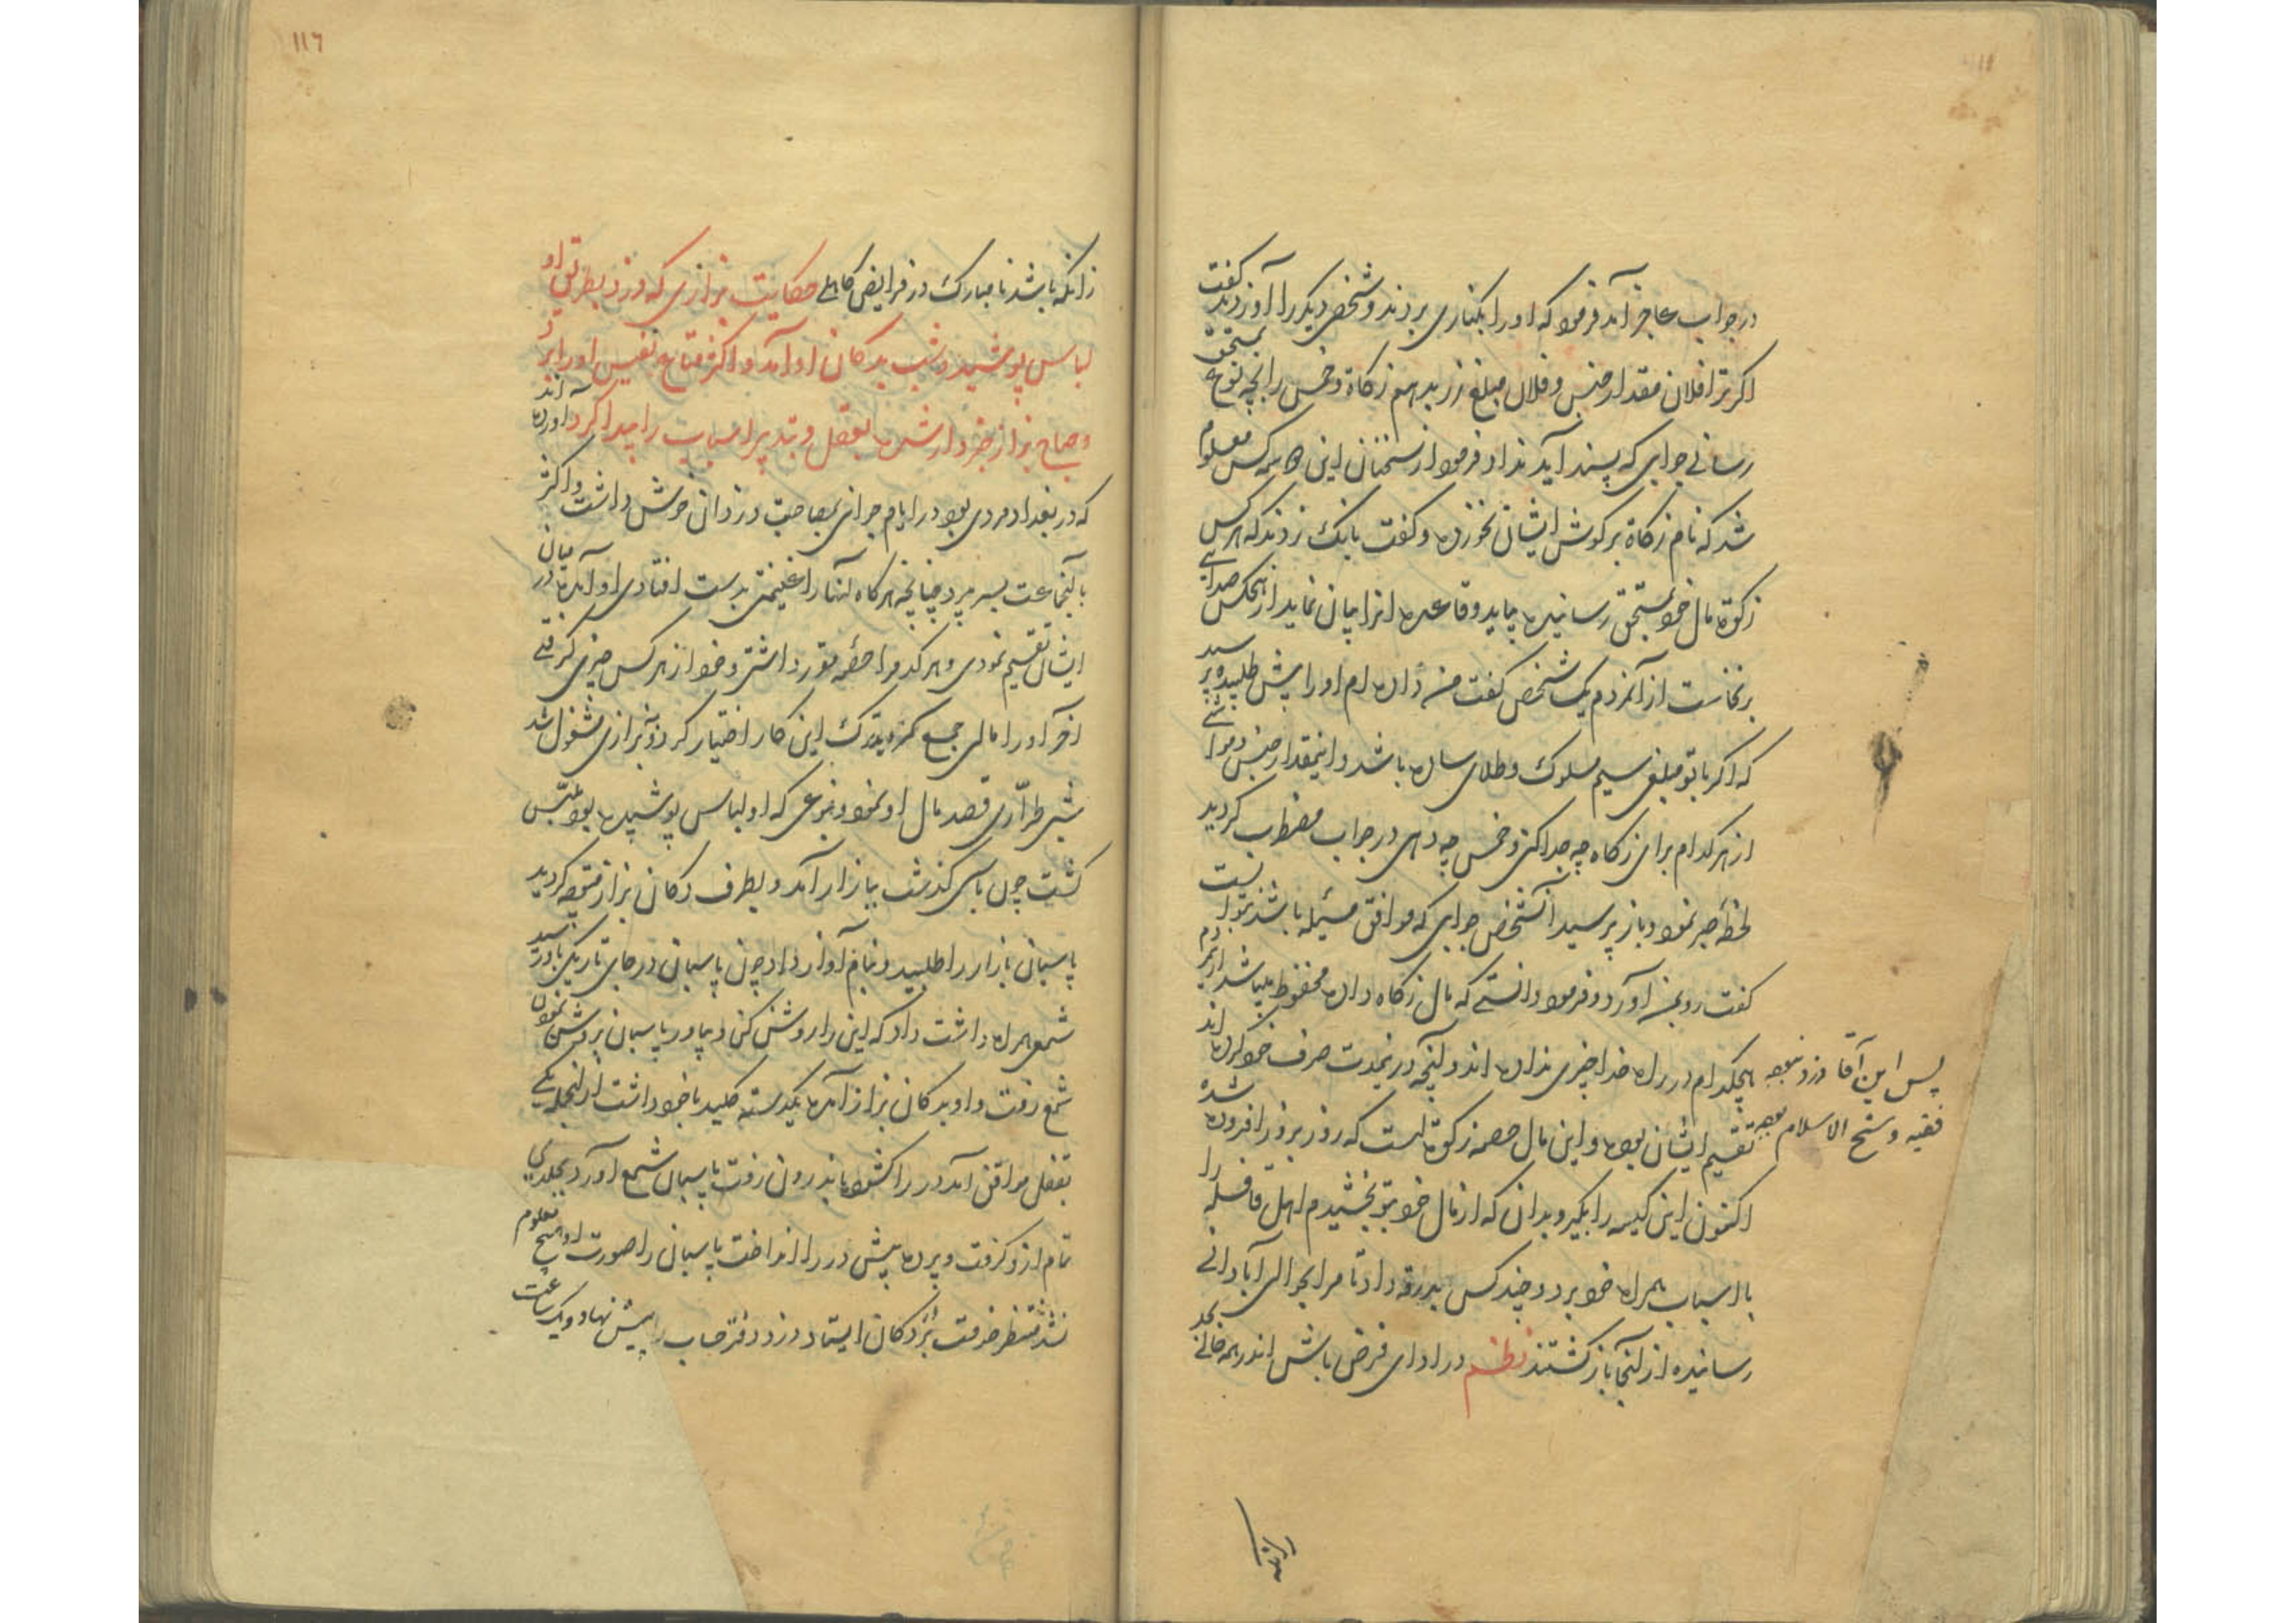 در جواب عاجز آمد فرمود که او را بکناری بردند و شخص دیگر را آوردند گفت
اگر ترا فلان مقدار جنس و فلان مبلغ زر بدهم زکاة و خمس را بچه نوع بمستحق
رسانی جوابی که پسند آید نداد فرمود از سخنان این همه کس معلوم
شد که نام زکاة بر گوش ایشان نخورده و گفت بانگ زدند که هر کس
زکوة مال خود بمستحق رسانیده بیاید و قاعده انرا بیان نماید از هیچکس صدایی
برنخاست از آنمردم یک شخص گفت من داده ام او را پیش طلبیده پرسید
که اگر با تو مبلغی سیم مسلوک و طلای ساده باشد و اینمقدار جنس و مواشی
از هر کدام برای زکاه چه جدا کنی و خمس چه دهی در جواب مضطرب گردید
لحظه صبر نمود و باز پرسید آنشخص جوابی که موافق مسئله باشد نتوانست
گفت رو بمن آورد و فرمود دانستی که مال زکاه داده محفوظ میباشد ازینمردم
هیچکدام در راه خدا چیزی نداده اند و آنچه درینمدت صرف خود کرده اند
تقسیم ایشان بوده و این مال حصه زکوة است که روز بروز افزوده شده
پس این آقا دزد نبوده
فقیه و شیخ الاسلام بوده
اکنون این کیسه را بگیر و بدان که از مال خود بتو بخشیدم اهل قافله را
با اسباب همراه خود برد و چند کس بدرقه داد تا مرا بحوالی آبادانی
رسانیده از آنجا باز گشتند نظم در ادای فرض باش اندر همه حالی بجد
١١٦
زانکه باشد نامبارک در فرایض کاهلی حکایت بزازی که دزد بطریق او
لباس پوشید و شب بدکان او آمد و اکثر متاع نفیس او را برد
و صباح بزاز خبردار شده بعقل و تدبیر اسباب را پیدا کرد آورده اند
که در بغداد مردی بود در ایام جوانی بمصاحبت دزدان خوش داشت و اکثر
با آنجماعت بسر میبرد چنانچه هر گاه آنها را غنیمتی بدست افتادی او آمده در میان
ایشان تقسیم نمودی و هر کدام را حصه مقرر داشتی و خود از هر کس چیزی گرفتی
آخر او را مالی جمع شده بترک این کار اختیار کرد و ببزازی مشغول شد
شبی طراری قصد مال او نمود و بنوعی که او لباس پوشیده بود ملبس
گشت چون پاسی گذشت ببازار آمد و بطرف دکان بزاز متوجه گردید
پاسبان بازار را طلبید و بنام آواز داد چون پاسبان در جای تاریک باو رسید
شمعی همراه داشت داد که این را روشن کن و بیاور پاسبان بروشن نمودن
شمع رفت و او بدکان بزاز آمده یکدسته کلید با خود داشت از آنجمله یکی
بقفل موافق آمد در را گشوده باندرون رفت پاسبان شمع آورد بجلدی
تمام ازو گرفت و پرده پیش در را انداخت پاسبان را صورت او هیچ معلوم
نشد منتظر خدمت نزد دکان ایستاد دزد دفتر حساب را پیش نهاد و یک ساعت